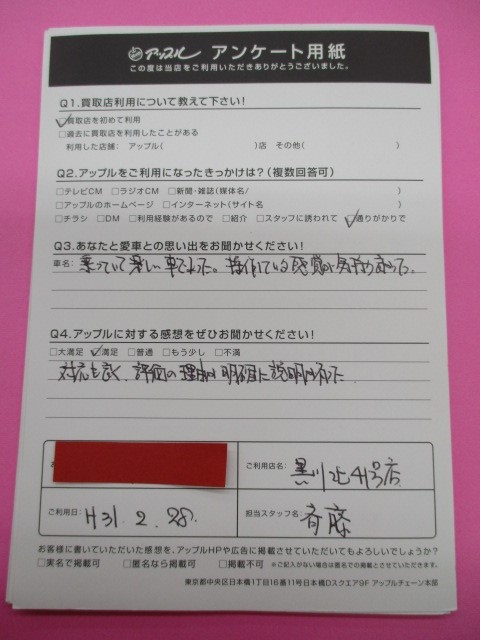 アップル アンケート用紙
この度は当店をご利用いただきありがとうございました。
Q1.買取店利用について教えて下さい!
□買取店を初めて利用
□過去に買取店を利用したことがある
利用した店舗: アップル( )店 その他( )
Q2.アップルをご利用になったきっかけは?(複数回答可)
□テレビCM □ラジオCM □新聞・雑誌(媒体名/ )
□アップルのホームページ □インターネット(サイト名 )
□チラシ □DM □利用経験があるので □紹介 □スタッフに誘われて □通りがかりで
Q3.あなたと愛車との思い出をお聞かせください!
車名: 乗っていて楽しい車でした。操作している感覚が気持ち良かった。
Q4.アップルに対する感想をぜひお聞かせください!
□大満足 □満足 □普通 □もう少し □不満
対応も良く、評価の理由が明確に説明
ご利用店名: 黒川北41号店
ご利用日: H31.2.28.
担当スタッフ名: 斉藤
お客様に書いていただいた感想を、アップルHPや広告に掲載させていただいてもよろしいでしょうか?
□実名で掲載可 □匿名なら掲載可 □掲載不可 ※ご記入がない場合は匿名での掲載とさせていただきます。
東京都中央区日本橋1丁目16番11号日本橋Dスクエア9F アップルチェーン本部